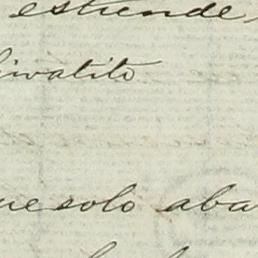 estiende,
ivatito
ue solo aba